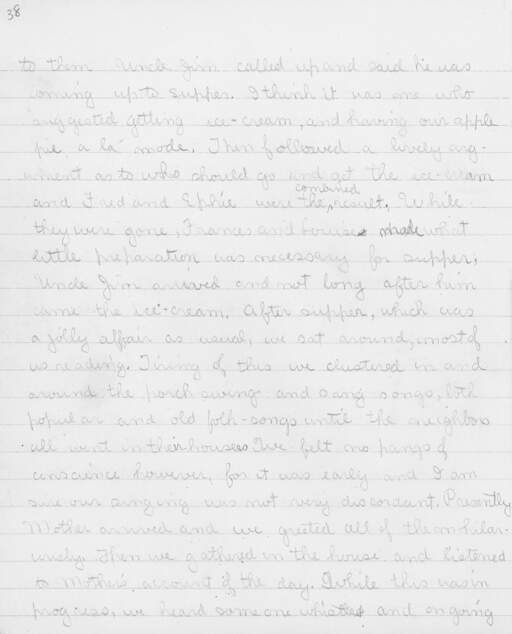 38
to them Uncle Jim called up and said he was
coming up to supper. I think it was one who
suggested getting ice-cream, and having our apple
pie a la mode. Then followed a lively arg-
ument as to who should go and get the ice-cream
and Fred and Ephie were the combined result. While
they were gone, Frances and Louise made what
little preparation was necessary for supper.
Uncle Jim arrived and not long after him
came the ice-cream. After supper, which was
a jolly affair as usual, we sat around, most of
us reading. Tiring of this we clustered in and
around the porch swing and sang songs, both
popular and old folk-songs until the neighbors
all went in their houses. We felt no pangs of
conscience however, for it was early and I am
sure our singing was not very discordant. Presently
Mother arrived and we greeted all of them hilar-
iously. Then we gathered in the house and listened
to Mother's account of the day. While this was in
progress, we heard someone whistle and on going